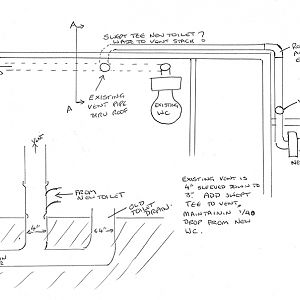 SWEPT TEE NEW TOILET?
WASTE TO VENT STACK!
A
A
EXISTING
VENT PIPE
THRU ROOF
EXISTING
WC
VENT
FROM
NEW TOILET
OLD
TOILET
DRAIN.
4"
64"
EXISTING VENT IS
4" SLEEVED DOWN TO
3". ADD SWEPT
TEE TO VENT.
MAINTAININ 1/40
DROP FROM NEW
WC.
NE